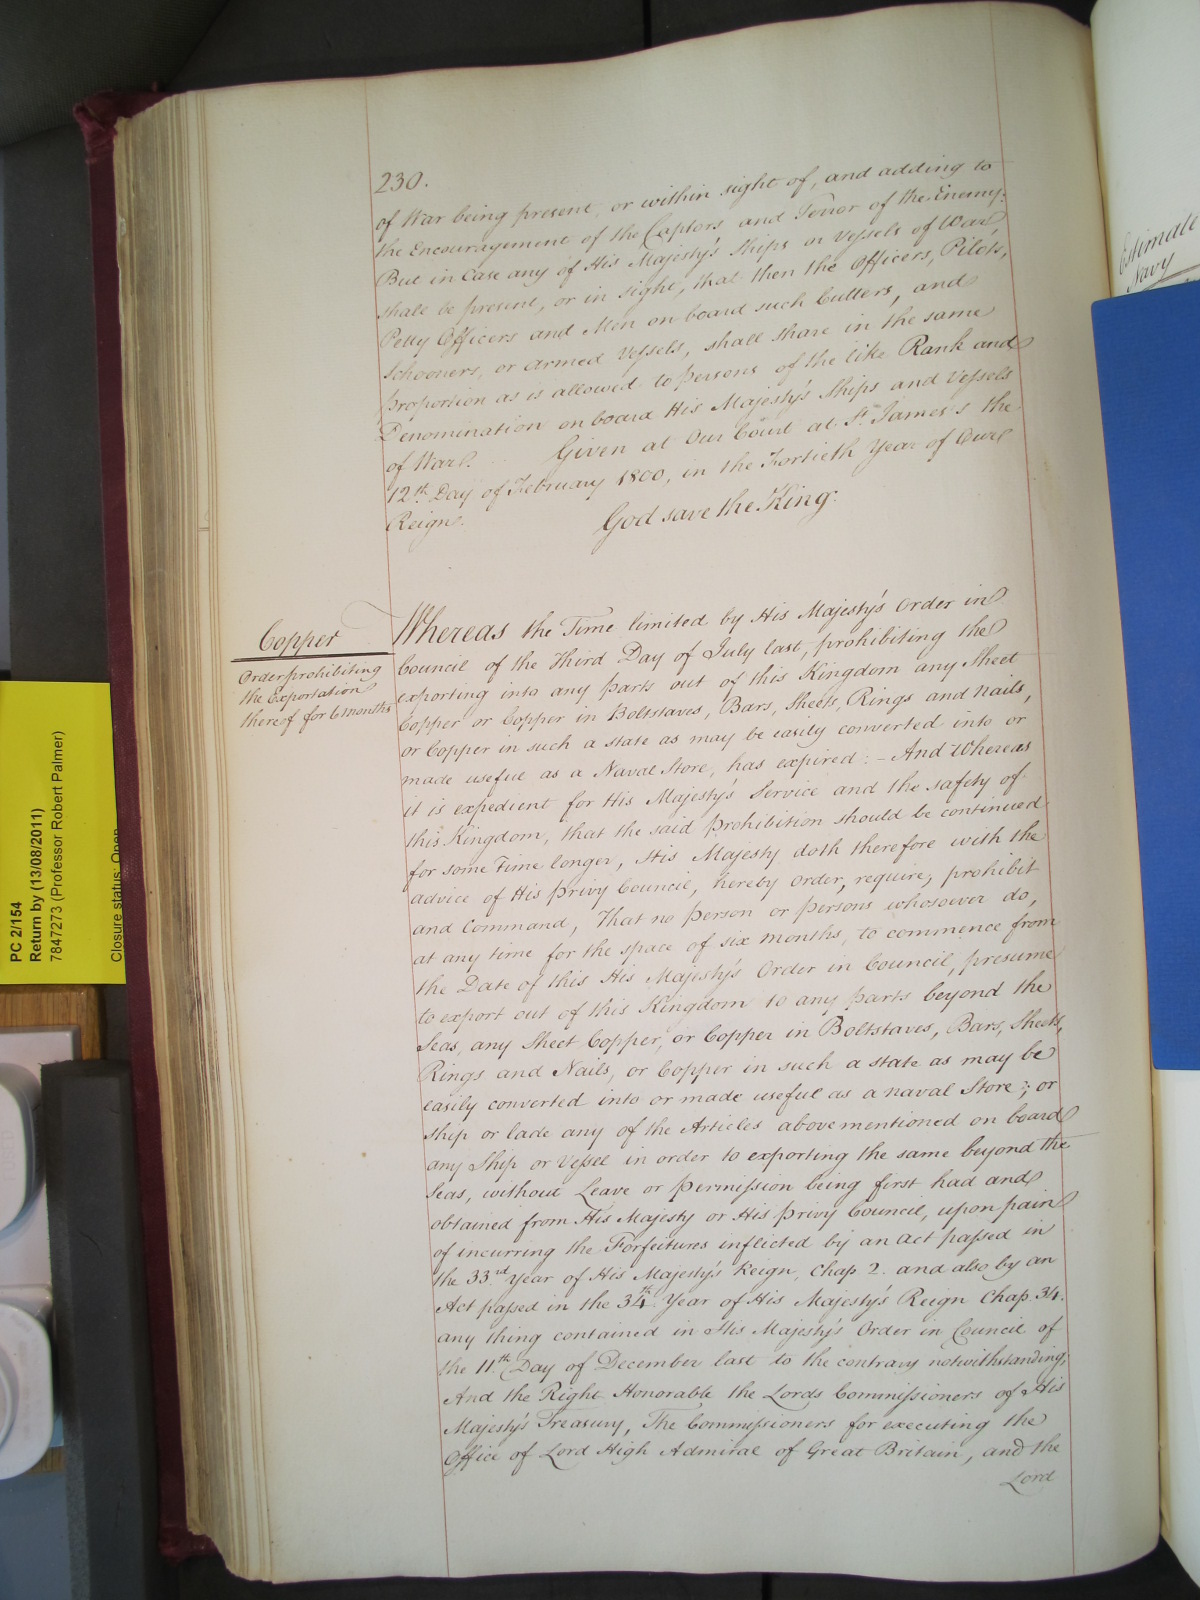 230.
of War being present, or within sight of, and adding to
the Encouragement of the Captors, and Terror of the Enemy:
But in Case any of His Majesty's Ships or Vessels of War
shall be present, or in sight, that then the Officers, Pilots,
Petty Officers and Men on board such Cutters, and
Schooners, or armed Vessels, shall share in the same
proportion as is allowed to persons of the like Rank and
Denomination on board His Majesty's Ships and Vessels
of War. Given at Our Court at St. James's the
12th Day of February 1800, in the Fortieth Year of Our
Reign.
God save the King.
Copper
Order prohibiting
the Exportation
thereof for 6 months
Whereas the Time limited by His Majesty's Order in
Council of the Third Day of July last, prohibiting the
exporting into any parts out of this Kingdom any Sheet
Copper or Copper in Boltstaves, Bars, Sheets, Rings and nails,
or Copper in such a state as may be easily converted into or
made useful as a Naval Store, has expired: - And Whereas
it is expedient for His Majesty's Service and the safety of
this Kingdom, that the said Prohibition should be continued
for some Time longer, His Majesty doth therefore with the
advice of His Privy Council, hereby Order, require, prohibit
and Command, That no person or persons whosoever do,
at any time for the space of six months, to commence from
the Date of this His Majesty's Order in Council, presume
to export out of this Kingdom to any parts beyond the
Seas, any Sheet Copper, or Copper in Boltstaves, Bars, Sheets,
Rings and Nails, or Copper in such a state as may be
easily converted into or made useful as a naval Store; or
ship or lade any of the Articles abovementioned on board
any Ship or Vessel in order to exporting the same beyond the
Seas, without Leave or permission being first had and
obtained from His Majesty or His Privy Council, upon pain
of incurring the Forfeitures inflicted by an act passed in
the 33rd Year of His Majesty's Reign, Chap 2. and also by an
Act passed in the 34th Year of His Majesty's Reign Chap. 34.
any thing contained in His Majesty's Order in Council of
the 11th Day of December last to the contrary notwithstanding;
And the Right Honorable the Lords Commissioners of His
Majesty's Treasury, The Commissioners for executing the
Office of Lord High Admiral of Great Britain, and the
Lord
Estimate
Navy
PC 2/154
Return by (13/08/2011)
7847273 (Professor Robert Palmer)
Closure status: Open